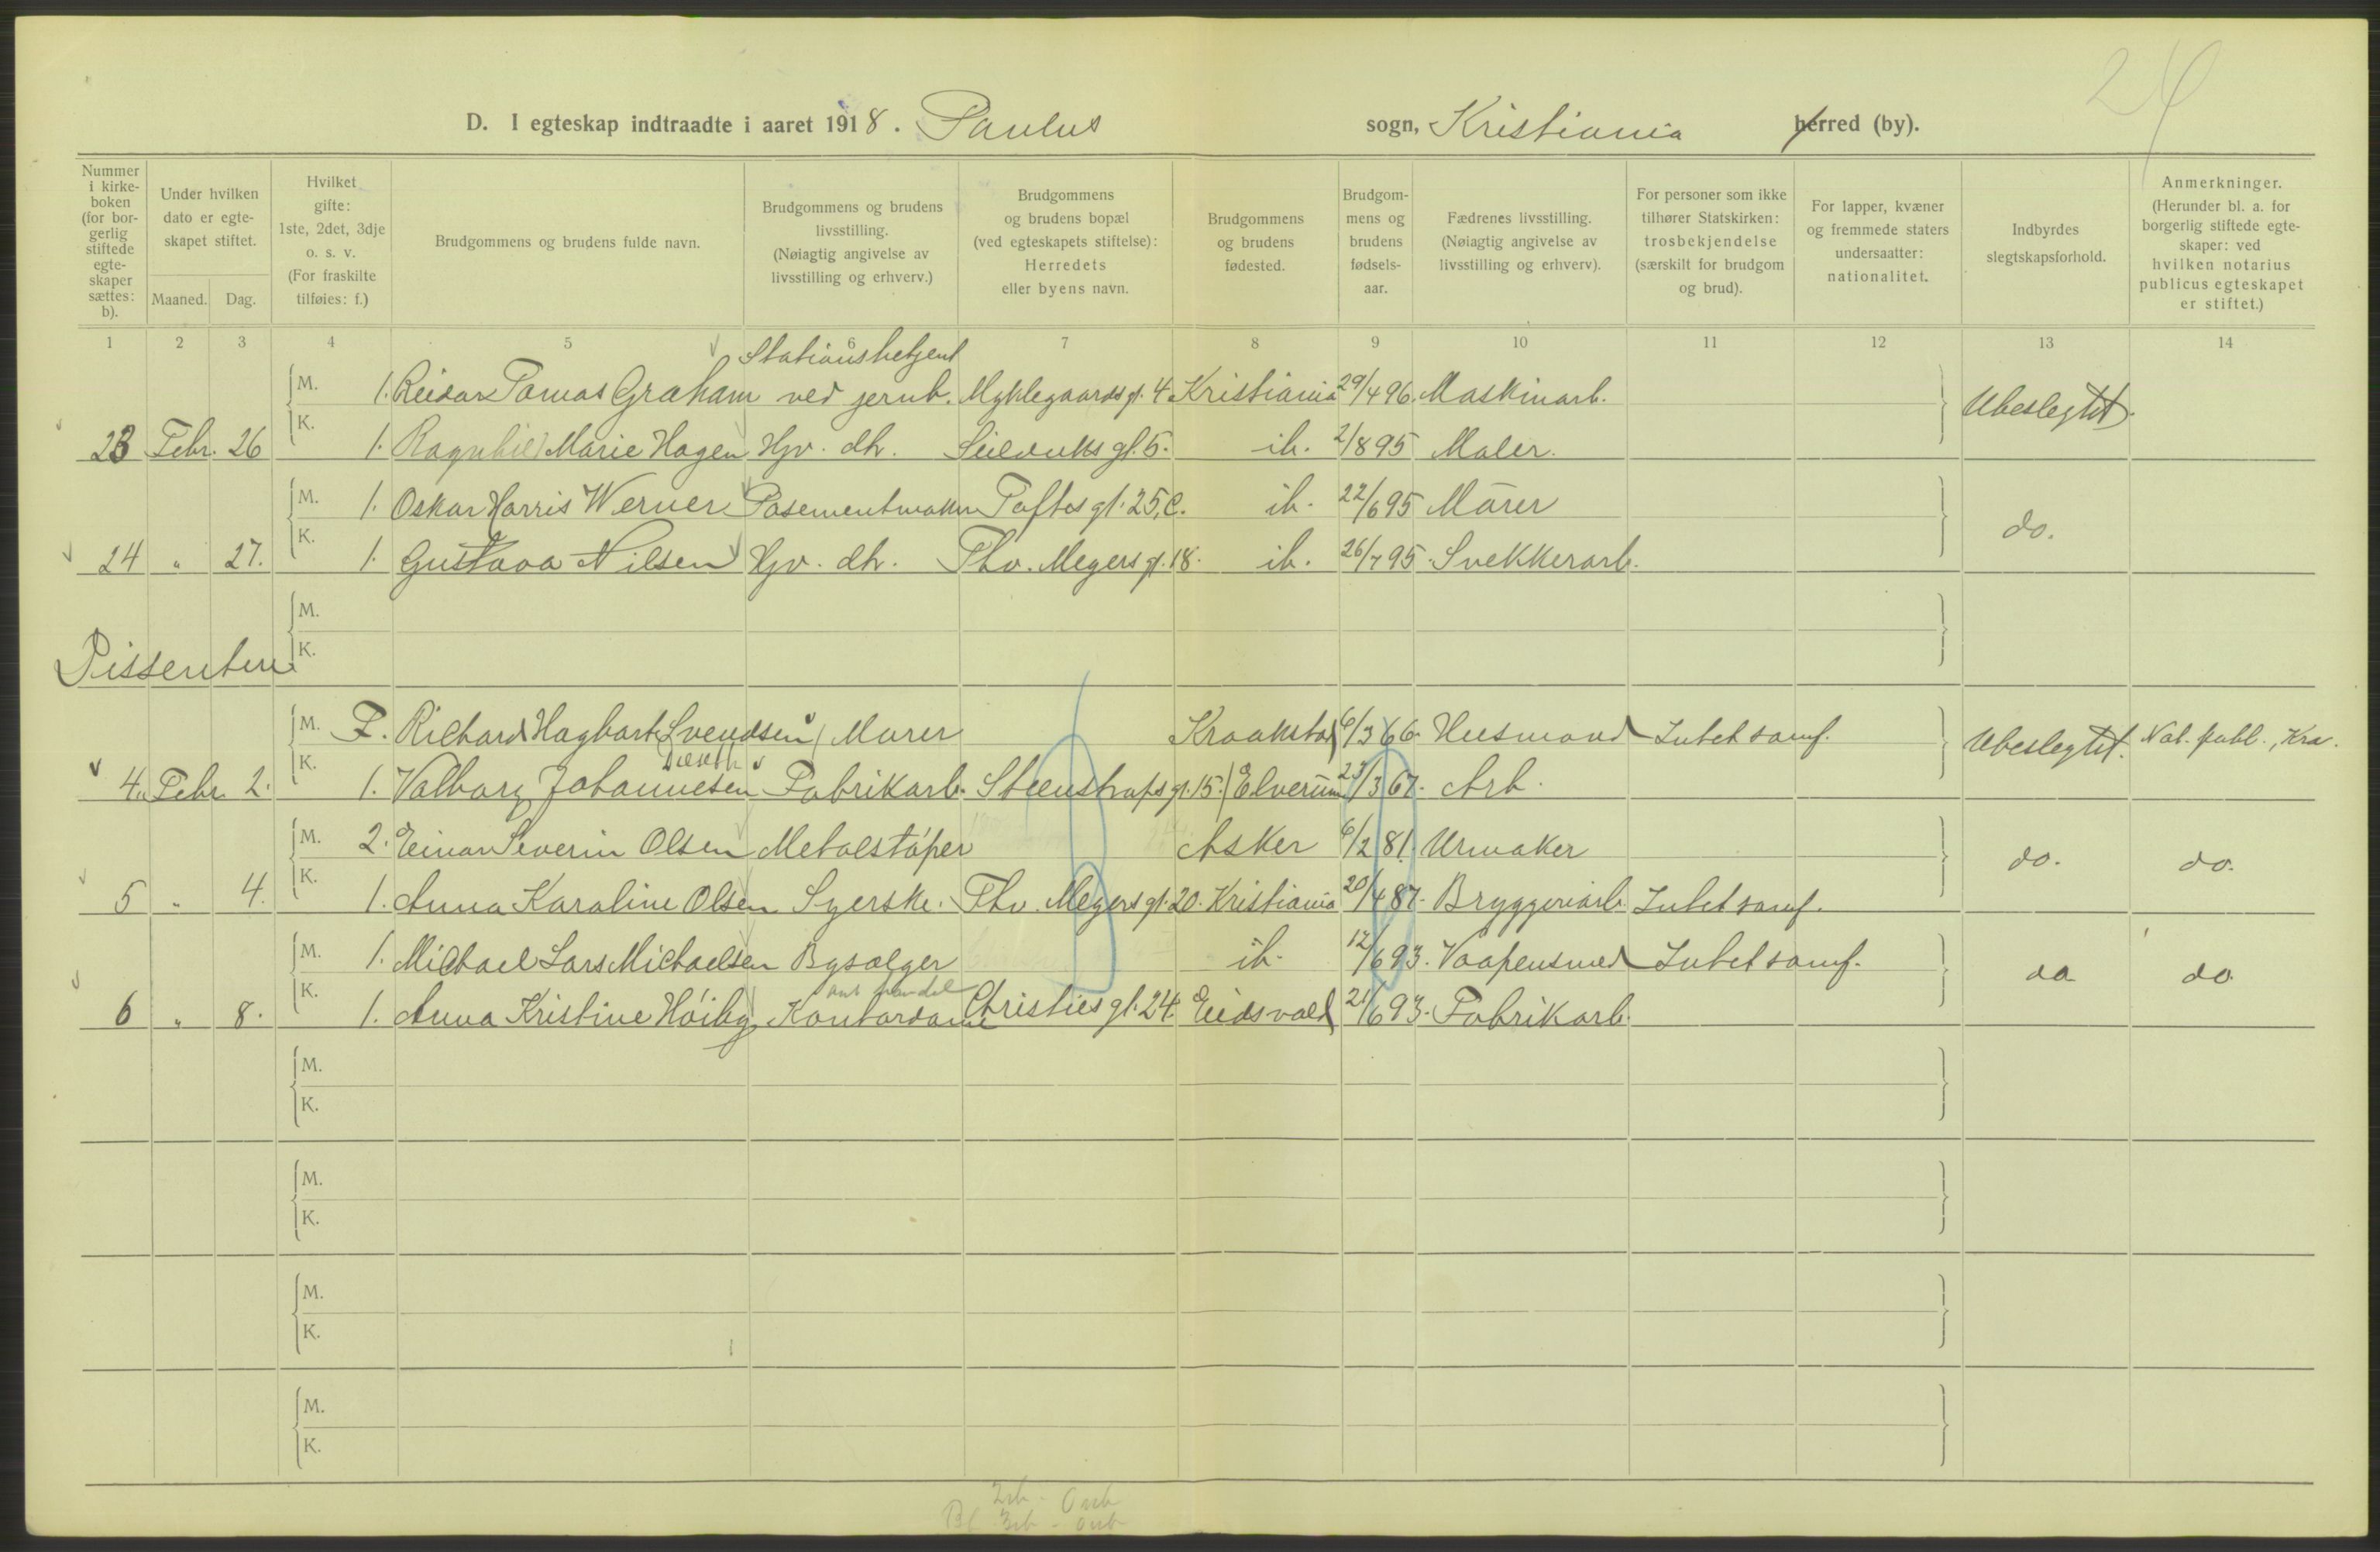 24
D. I egteskap indtraadte i aaret 1918. Paulus sogn, Kristiania herred (by).
Nummer i kirke-boken (for bor-gerlig stiftede egte-skaper sættes: b).
Under hvilken dato er egte-skapet stiftet.
Maaned. Dag.
Hvilket gifte: 1ste, 2det, 3dje o. s. v. (For fraskilte tilføies: f.)
Brudgommens og brudens fulde navn.
Brudgommens og brudens livsstilling. (Nøiagtig angivelse av livsstilling og erhverv.)
Brudgommens og brudens bopæl (ved egteskapets stiftelse): Herredets eller byens navn.
Brudgommens og brudens fødested.
Brudgom-mens og brudens fødsels-aar.
Fædrenes livsstilling. (Nøiagtig angivelse av livsstilling og erhverv).
For personer som ikke tilhører Statskirken: trosbekjendelse (særskilt for brudgom og brud).
For lapper, kvæner og fremmede staters undersaatter: nationalitet.
Indbyrdes slegtskapsforhold.
Anmerkninger. (Herunder bl. a. for borgerlig stiftede egte-skaper: ved hvilken notarius publicus egteskapet er stiftet.)
1 2 3 4 5 6 7 8 9 10 11 12 13 14
Stationsbetjent
M. 1. Reidar Tomas Graham ved jernb. Myklegaards gt. 4 Kristiania 29/4 96. Maskinarb. Ubeslegtet.
23 Febr. 26 K. 1. Ragnhild Marie Hagen Hjv. dtr. Seilduks gt. 5. ib. 2/8 95 Maler.
M. 1. Oskar Harris Werner Posementmaker Toftes gt. 25, C. ib. 22/6 95 Murer do.
24 " 27. K. 1. Gustava Nilsen Hjv. dtr. Thv. Meyers gt. 18. ib. 26/7 95. Svekkerarb.
M.
Dissentere K.
M. F. Richard Hagbart Svendsen Murer Kraakstad 6/3 66. Husmand Intet samf. Ubeslegtet. Not. publ., Kra.
4. Febr. 2. K. 1. Valborg Johannesen Fabrikarb. Steenstrups gt. 15. Elverum 23/3 67. Arb.
M. 2. Einar Severin Olsen Metalstøper Asker 6/2 81. Urmaker do. do.
5 " 4. K. 1. Anna Karoline Olsen Syerske. Thv. Meyers gt. 20. Kristiania 20/4 87. Bryggeriarb. Intet samf.
M. 1. Michael Lars Michaelsen Bysælger ib. 12/6 93. Vaapensmed Intet samf. do do.
6 " 8. K. 1. Anna Kristine Høiby Kontordame Christies gt. 24. Eidsvold 21/6 93. Fabrikarb.
M.
K.
M.
K.
M.
K.
M.
K.